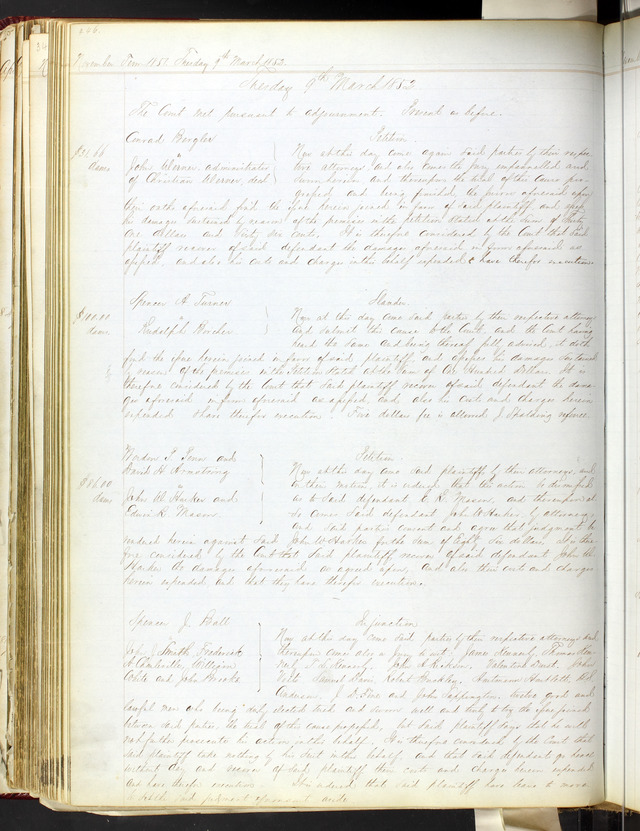 November Term 1851 Tuesday 9th March 1852
Tuesday 9th March 1852
The Court met pursuant to adjournment. Present as before.
Conrad Bergler
Petition
John Werner, administrator
of Christian Werner, decd
Now at this day come again said parties by their respec
tive attorneys and also comes the jury empannelled and
sworn herein and thereupon the trial of this cause pro
gressed and being finished the jurors aforesaid upon
their oaths aforesaid find the issue herein joined in favor of said plaintiff and assess
his damages sustained by reason of the premises in the Petition stated at the sum of Thirty
one dollars and sixty six cents. It is therefore considered by the Court that said
plaintiff recover of said defendant the damages aforesaid in form aforesaid as
assessed and also his costs and charges in this behalf expended & have therefor execution
Spencer A Turner
vs
Rudolph Bircher
Slander
$100.00
dams
Now at this day come said parties by their respective attorneys
and submit this cause to the Court and the Court having
heard the same and being thereof fully advised, it doth
find the issue herein joined in favor of said plaintiff and assesses his damages sustained
by reason of the premises in the Petition stated at the sum of One Hundred Dollars. It is
therefore considered by the Court that said plaintiff recover of said defendant the dama
ges aforesaid in form aforesaid as assessed and also his costs and charges herein
expended & have therefor execution. Five dollars fee is allowed J Spalding referee
and
David H. Armstrong
vs
John W Harker and
Edwin R Mason
Petition
dams
Now at this day come said plaintiffs by their attorneys, and
on their motion it is ordered that this action be dismissed
as to said defendant, E R Mason, and thereupon al
so comes said defendant John W Harker, by attorney
and said parties consent and agree that judgment be
rendered herein against said John W Harker for the sum of Eighty Six dollars. It is there
fore considered by the Court that said plaintiffs recover of said defendant John W
Harker the damages aforesaid as agreed upon, and also their costs and charges
herein expended and that they have therefor execution.
Spencer J. Ball
vs
John J Smith, Frederick
A. William
White and John Brooks
Injunction
Now at this day come said parties by their respective attorneys and
thereupon comes also a jury to wit: James Kennedy, Thornton
John
Robert Barkley,
and John twelve good and
lawful men who being duly elected tried and sworn well and truly to try the issue joined
between said parties, the trial of this cause progressed, but said plaintiff says that he will
not further prosecute his action in this behalf. It is therefore considered by the Court that
said plaintiff take nothing by his suit in this behalf and that said defendants go hence
without day and recover of said plaintiff their costs and charges herein expended
and have therefor execution. It is ordered that said plaintiff have leave to move
to set the said judgment of nonsuit aside